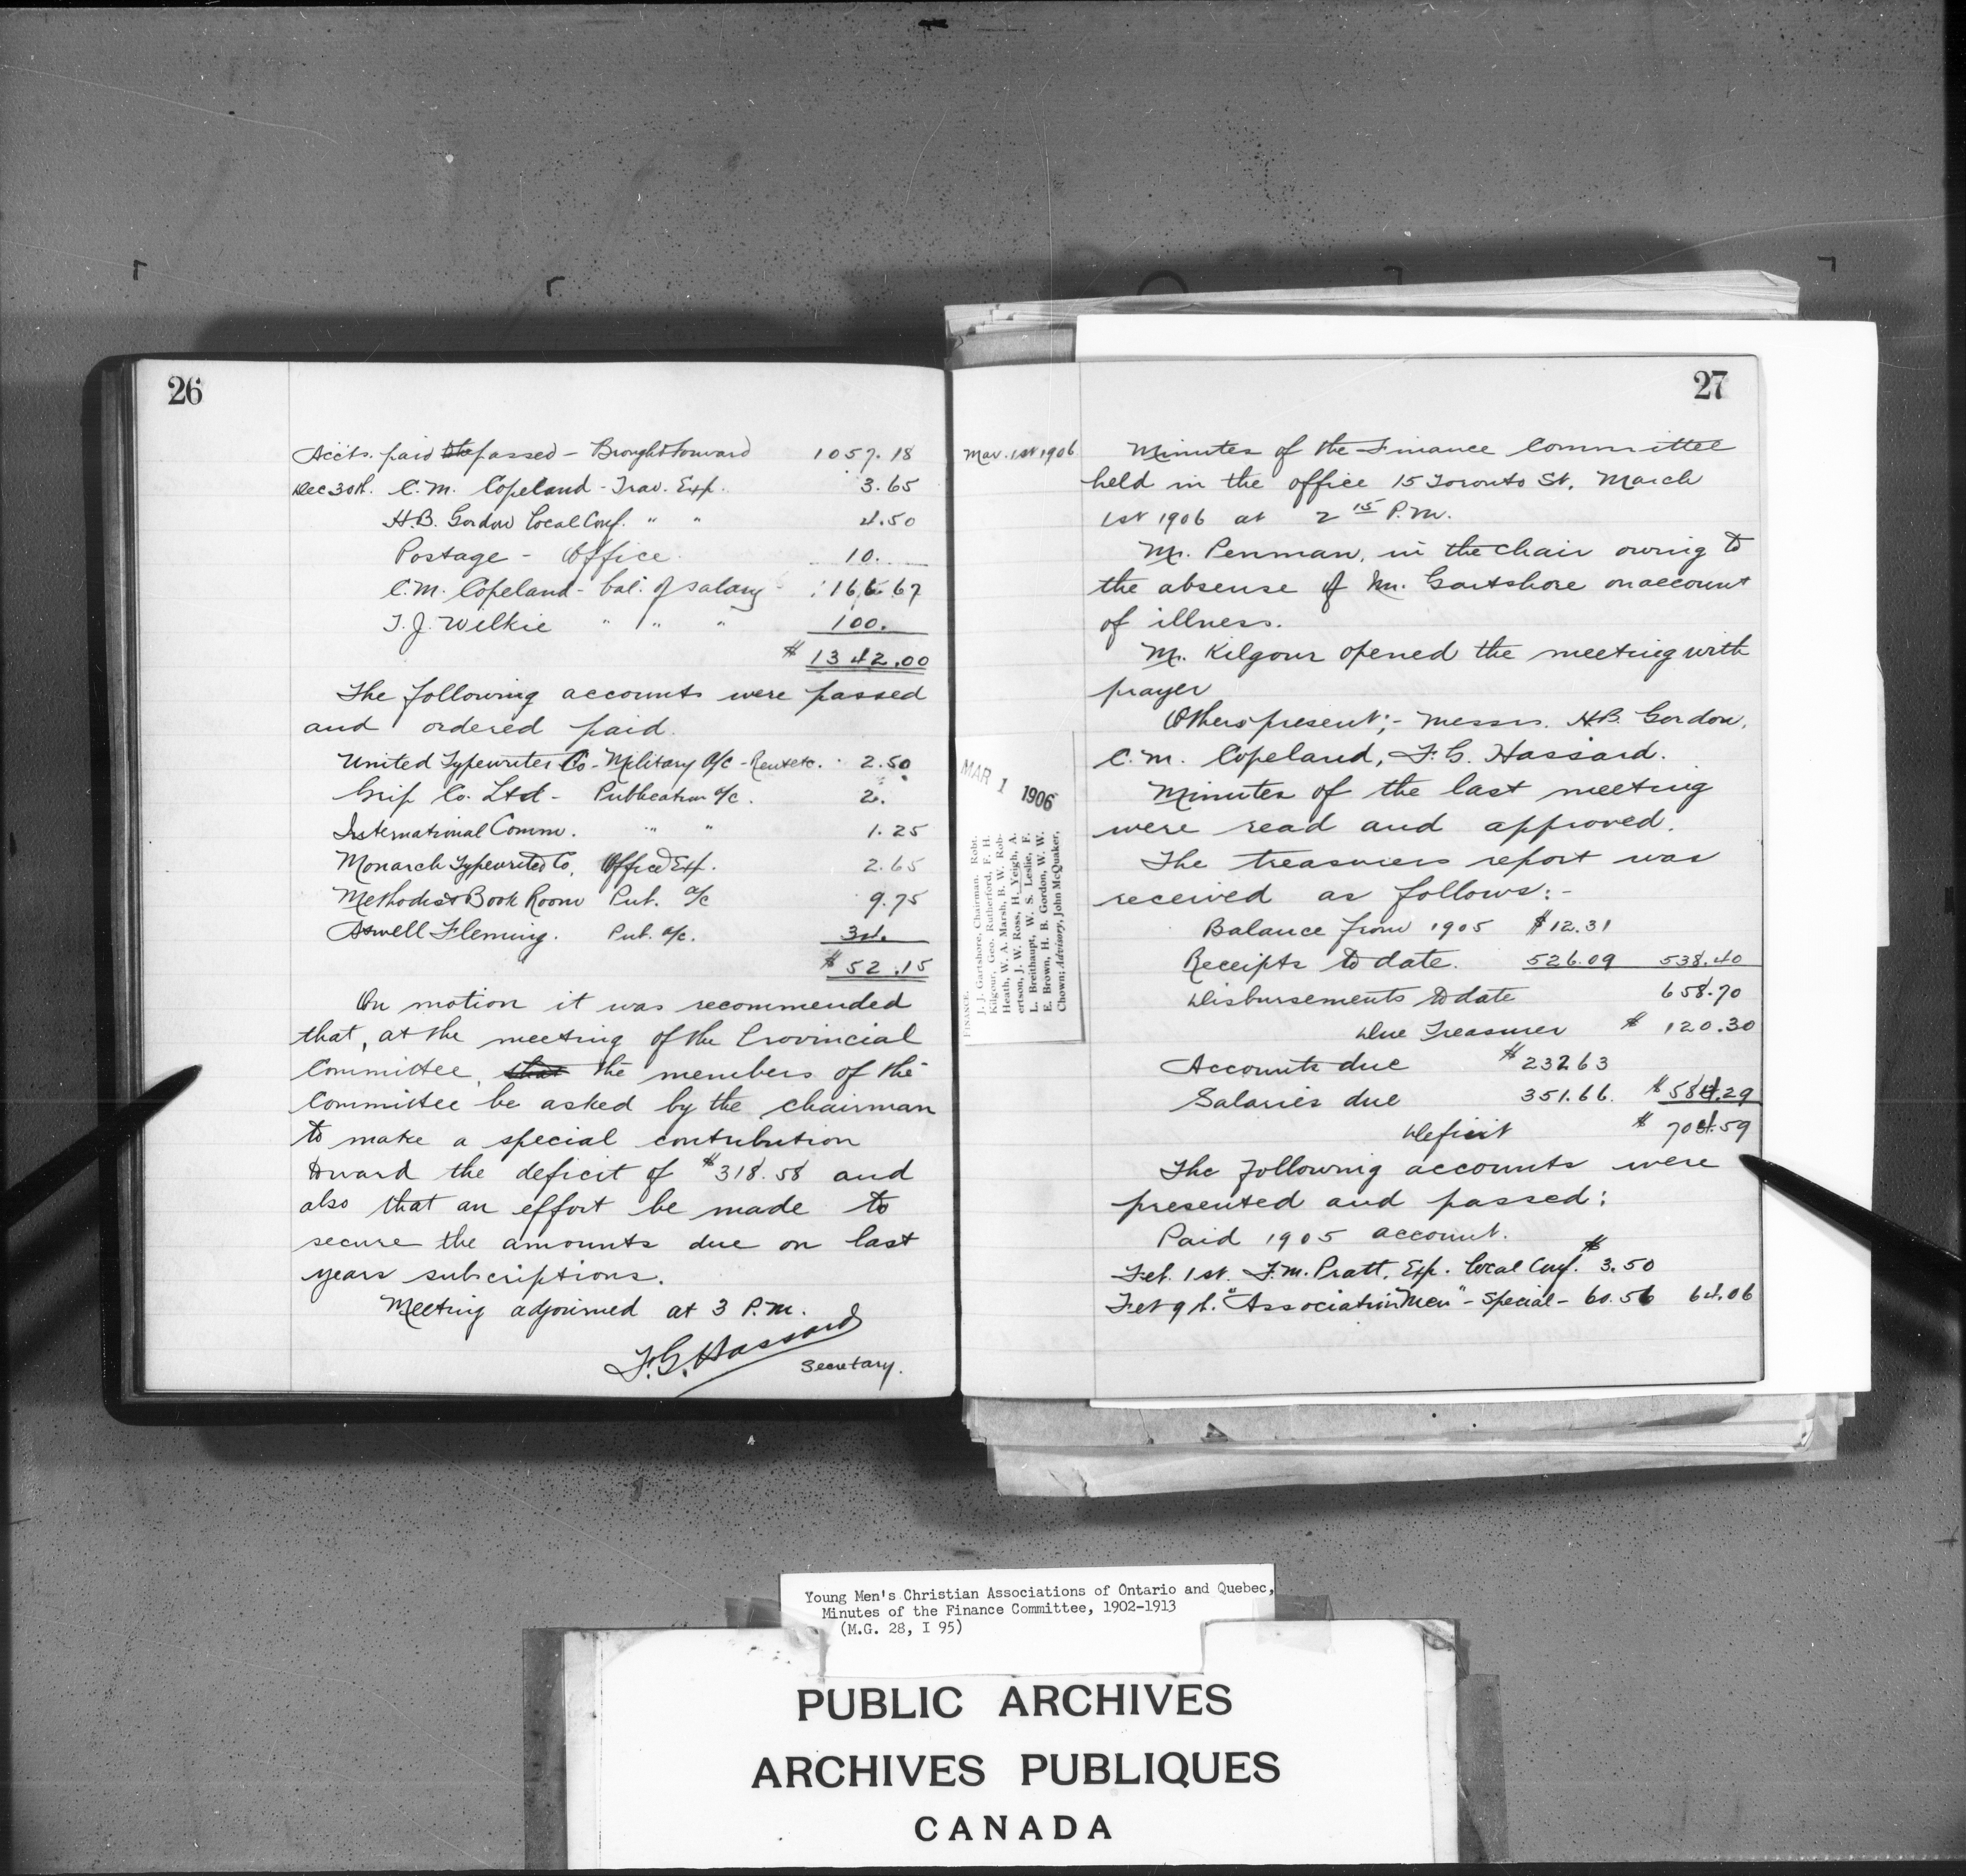 26
Acc'ts. paid the passed - Brought forward 1057.18
Dec 30th. C.M. Copeland - Trav. Exp. 3.65
H.B. Gordon Local Conf. " " 4.50
Postage - Office 10.
C.M. Copeland - bal. of salary - 166.67
T.J. Wilkie " " " 100.
$ 1342.00
The following accounts were passed
and ordered paid.
United Typewriter Co - Military a/c - Rent etc. 2.50
Grip Co. Ltd - Publication a/c. 2.
International Comm. " " 1.25
Monarch Typewriter Co. Office Exp. 2.65
Methodist Book Room Pub. a/c 9.75
Aswell Fleming. Pub. a/c. 34.
$ 52.15
On motion it was recommended
that, at the meeting of the Provincial
Committee, that the members of the
Committee be asked by the chairman
to make a special contribution
toward the deficit of $318.58 and
also that an effort be made to
secure the amounts due on last
years subscriptions.
Meeting adjourned at 3 P.M.
F.G. Hassard
Secretary.
27
Mar. 1st 1906
Minutes of the Finance Committee
held in the office 15 Toronto St. March
1st 1906 at 2 15 P.M.
Mr. Penman, in the chair owing to
the absense of Mr. Gartshore on account
of illness.
Mr. Kilgour opened the meeting with
prayer
Others present;- Messrs. H.B. Gordon,
C.M. Copeland, F.G. Hassard.
Minutes of the last meeting
were read and approved.
The treasurers report was
received as follows:-
Balance from 1905 $12.31
Receipts to date. 526.09 538.40
Disbursements to date 658.70
Due Treasurer $ 120.30
Accounts due $232.63
Salaries due 351.66. $584.29
Deficit $ 704.59
The following accounts were
presented and passed:
Paid 1905 account.
Feb. 1st. F.M. Pratt, Exp. Local Conf. $3.50
Feb 9th. "Association Men" - Special - 60.56 64.06
MAR 1 1906
FINANCE.
J. J. Gartshore, Chairman. Robt.
Kilgour, Geo. Rutherford, F. H.
Heath, W. A. Marsh, B. W. Rob-
ertson, J. W. Ross, H. Yeigh, A.
L. Breithaupt, W. S. Leslie, F.
E. Brown, H. B. Gordon, W. W.
Chown; Advisory, John McQuaker,
Young Men's Christian Associations of Ontario and Quebec,
Minutes of the Finance Committee, 1902-1913
(M.G. 28, I 95)
PUBLIC ARCHIVES
ARCHIVES PUBLIQUES
CANADA